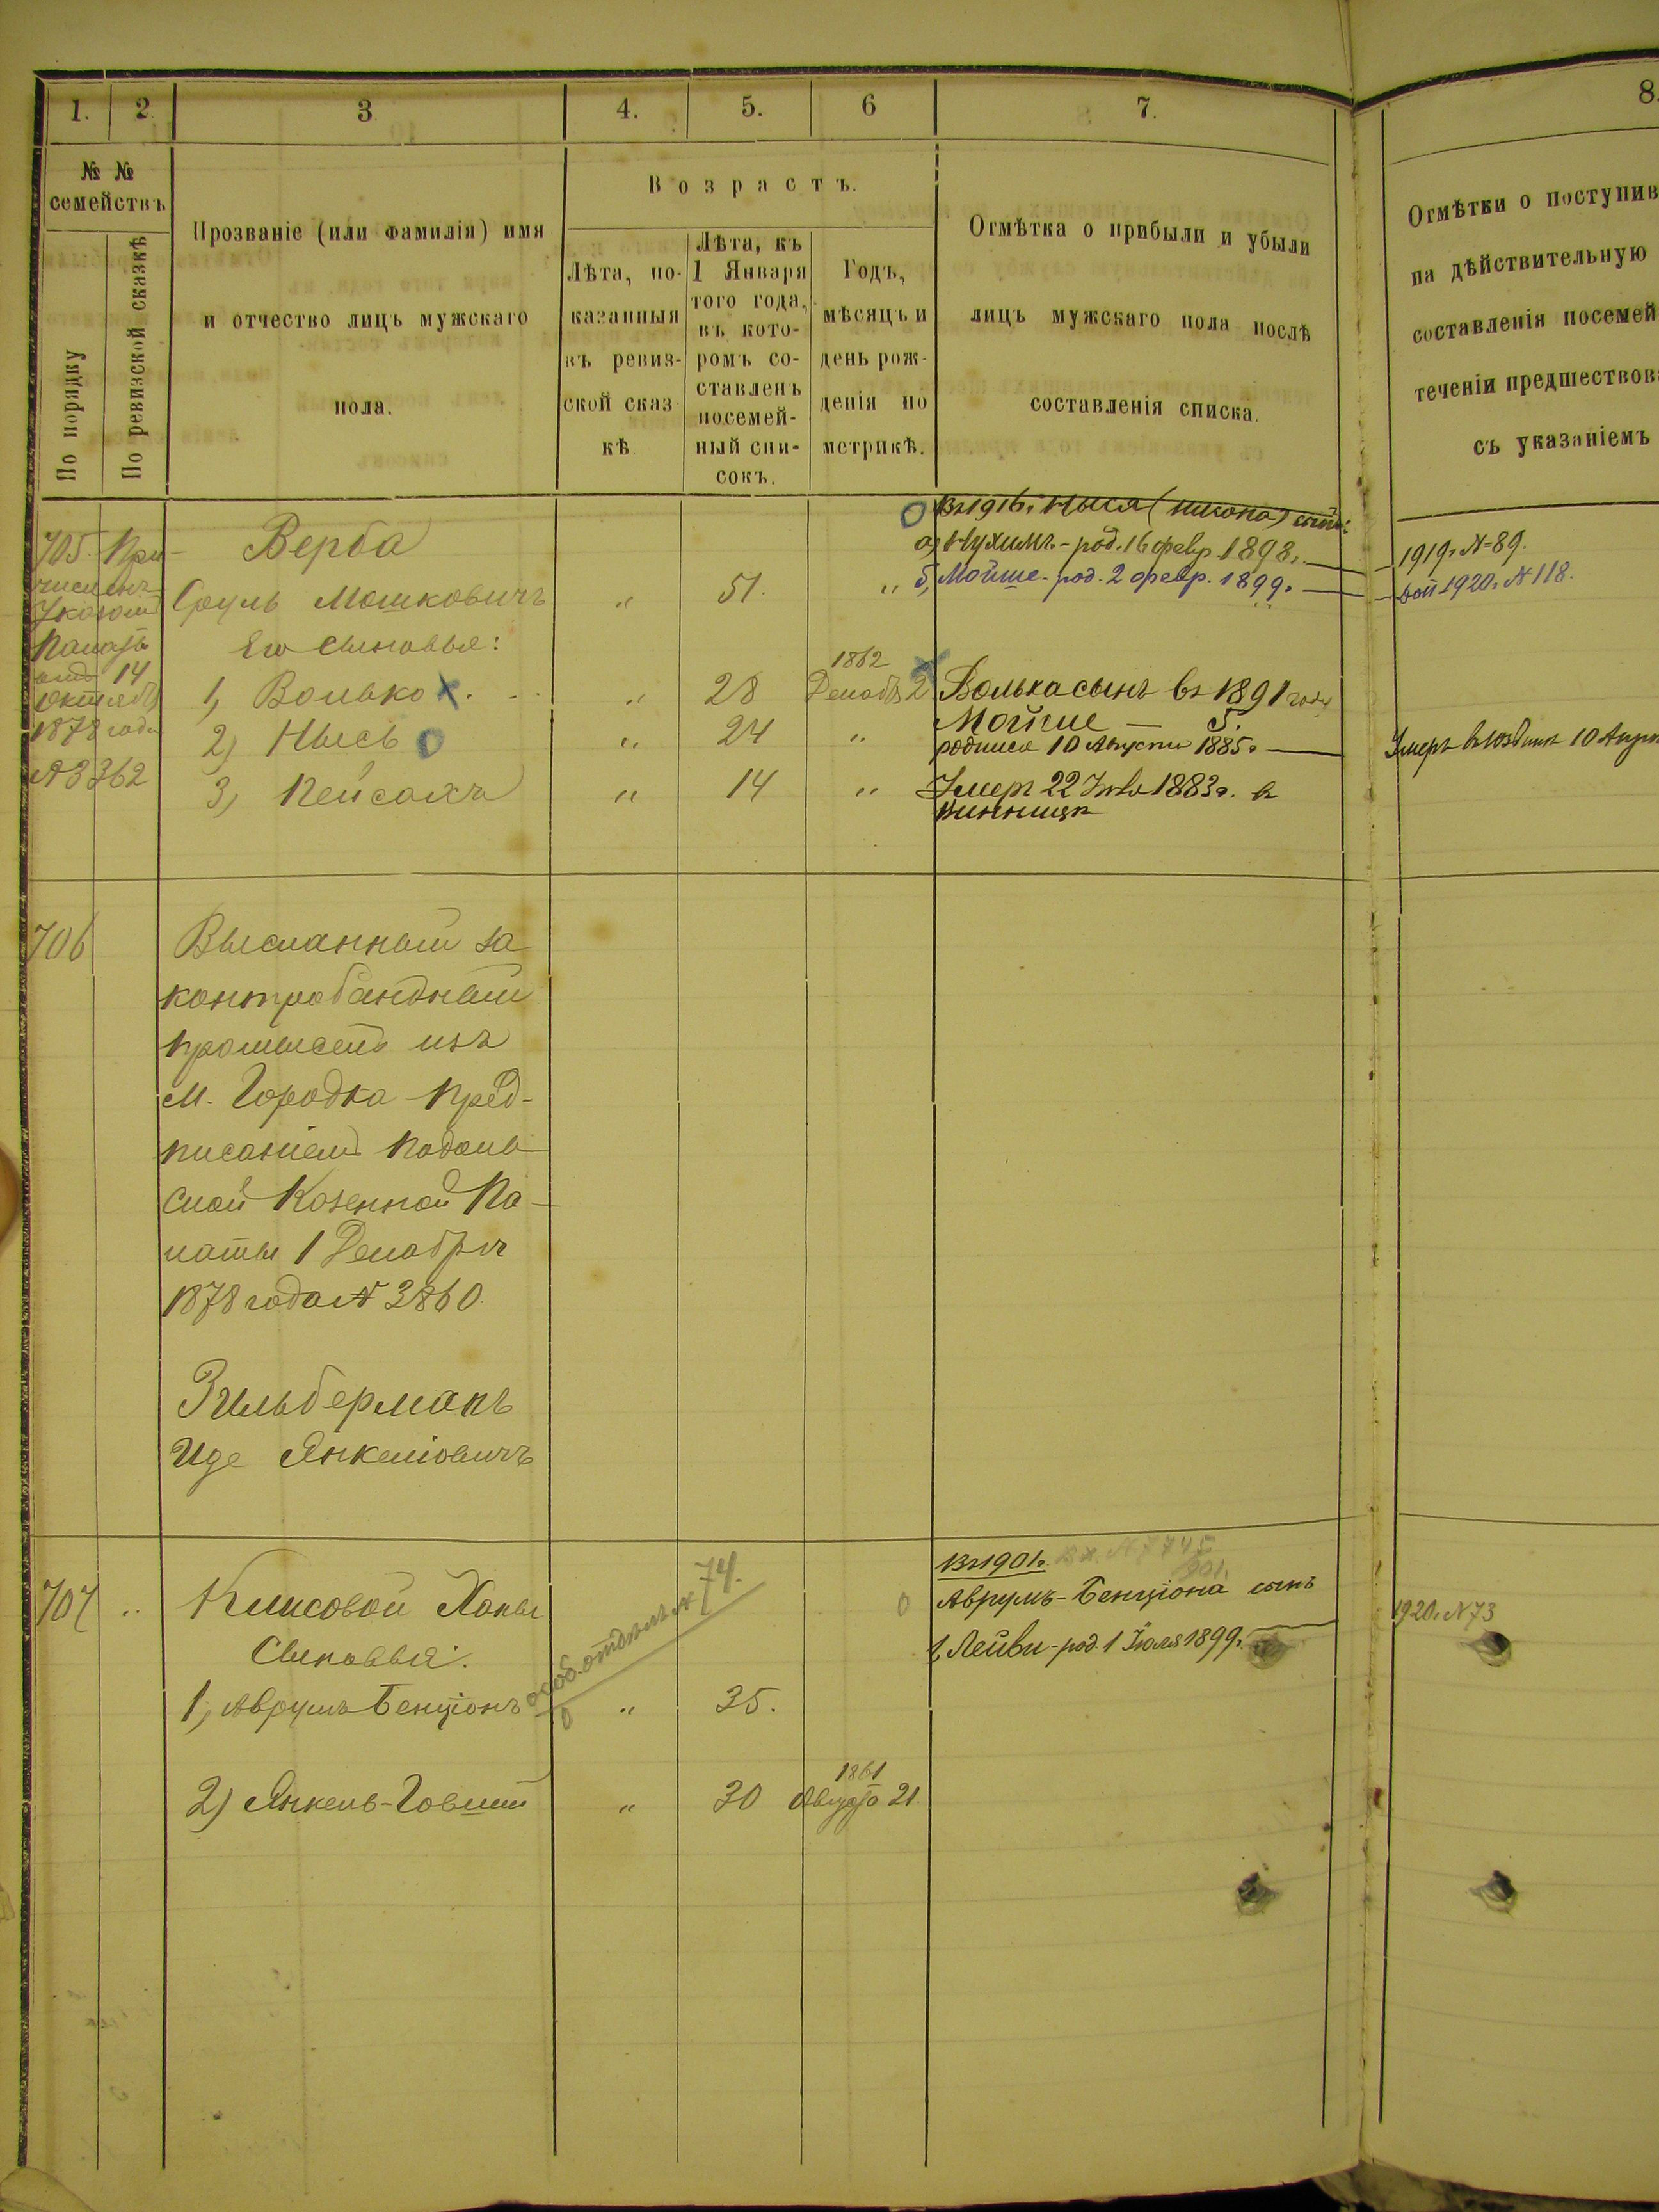 1. 2. 3 4. 5. 6 7. 8.
№ №
семействъ
По порядку
По ревизской сказкѣ
Прозваніе (или фамилія) имя
и отчество лицъ мужскаго
пола.
Возрастъ.
Лѣта, по-
казанныя
въ ревиз-
ской сказ
кѣ
Лѣта, къ
1 Января
того года,
въ кото-
ромъ со-
ставленъ
посемей-
ный спи-
сокъ.
Годъ,
мѣсяцъ и
день рож-
денія по
метрикѣ.
Отмѣтка о прибыли и убыли
лицъ мужскаго пола послѣ
составленія списка.
Отмѣтки о поступив
на дѣйствительную
составленія посемей
теченіи предшествов
съ указаніемъ
705. При-
численъ
Указомъ
Палаты
отъ 14
Октября
1878 года
№ 3362
Верба
Сруль Мошковичъ " 51. "
Его сыновья:
1, Волько х. " 28 1862 Декабр 2
2) Нысь О " 24 "
3, Пейсахъ " 14 "
Въ 1916г. Ныся сынъ:
а) Нухимъ - род. 16 февр. 1898г. 1919г. № 89.
б, Мойше - род. 2 февр. 1899г. 1920г. № 118.
Волька сынъ въ 1891 году
Мойше — 5.
родился 10 Августа 1885г.
Умеръ 10 Апр
Умеръ 22 1883г. въ
Винницѣ
706
Высланный за
контрабандный
промыселъ изъ
м. Городка пред-
писаніемъ Подоль-
ской Казенной Па-
латы 1 Декабря
1878 года № 3860.
Зильберманъ
Иде Янкеліовичъ
707 " Клисовой Ханы 74.
Сыновья:
1, Аврумъ Бенціонъ " 35.
особ. отдѣл. №
2) Янкель-Говшій " 30 1861 Августа 21.
Въ 1901г. Вх. № 7745
901.
Аврумъ-Бенціона сынъ
1, Лейви - род. 1 Іюля 1899г. 1920г. № 73